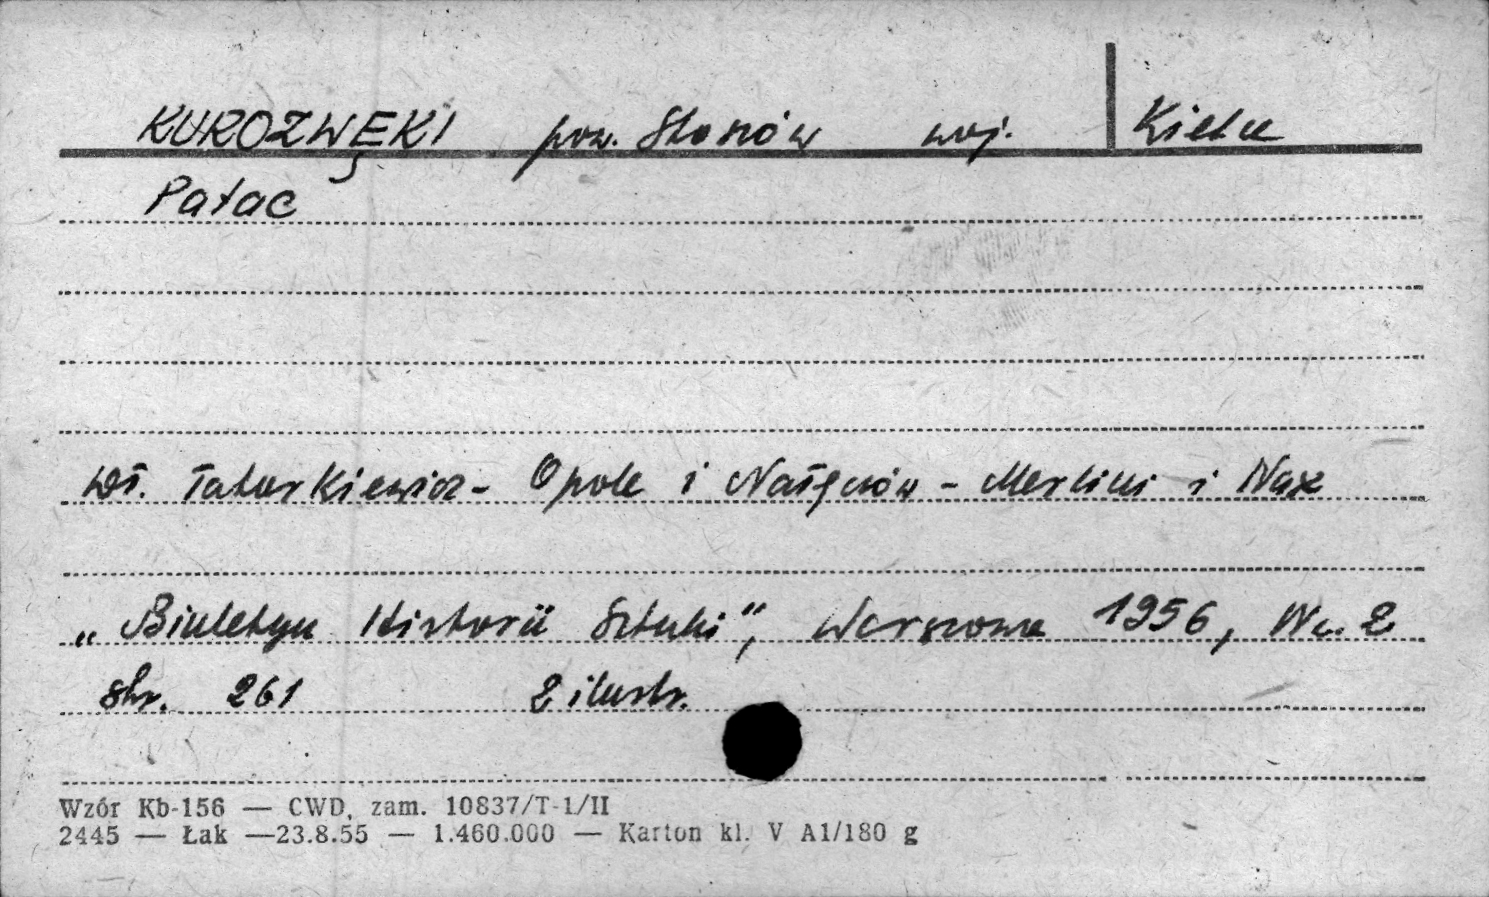 KUROZWĘKI pow. Staszów woj. Kielce
Pałac
Wł. Tatarkiewicz - Opole i Nałęczów - Merlini i Nax
„Biuletyn Historii Sztuki”, Warszawa 1956, Nr. 2
str. 261 2 ilustr.
Wzór Kb-156 — CWD, zam. 10837/T-1/II
2445 — Łak —23.8.55 — 1.460.000 — Karton kl. V A1/180 g